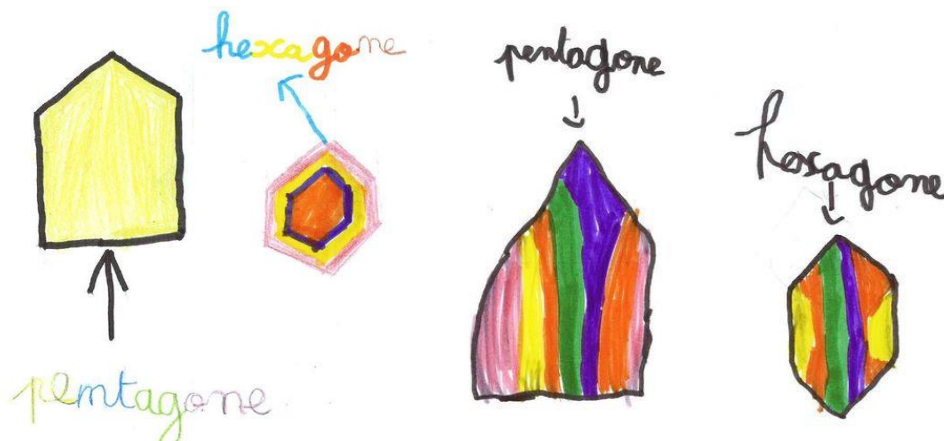 hexagone
pentagone
hexagone
pentagone